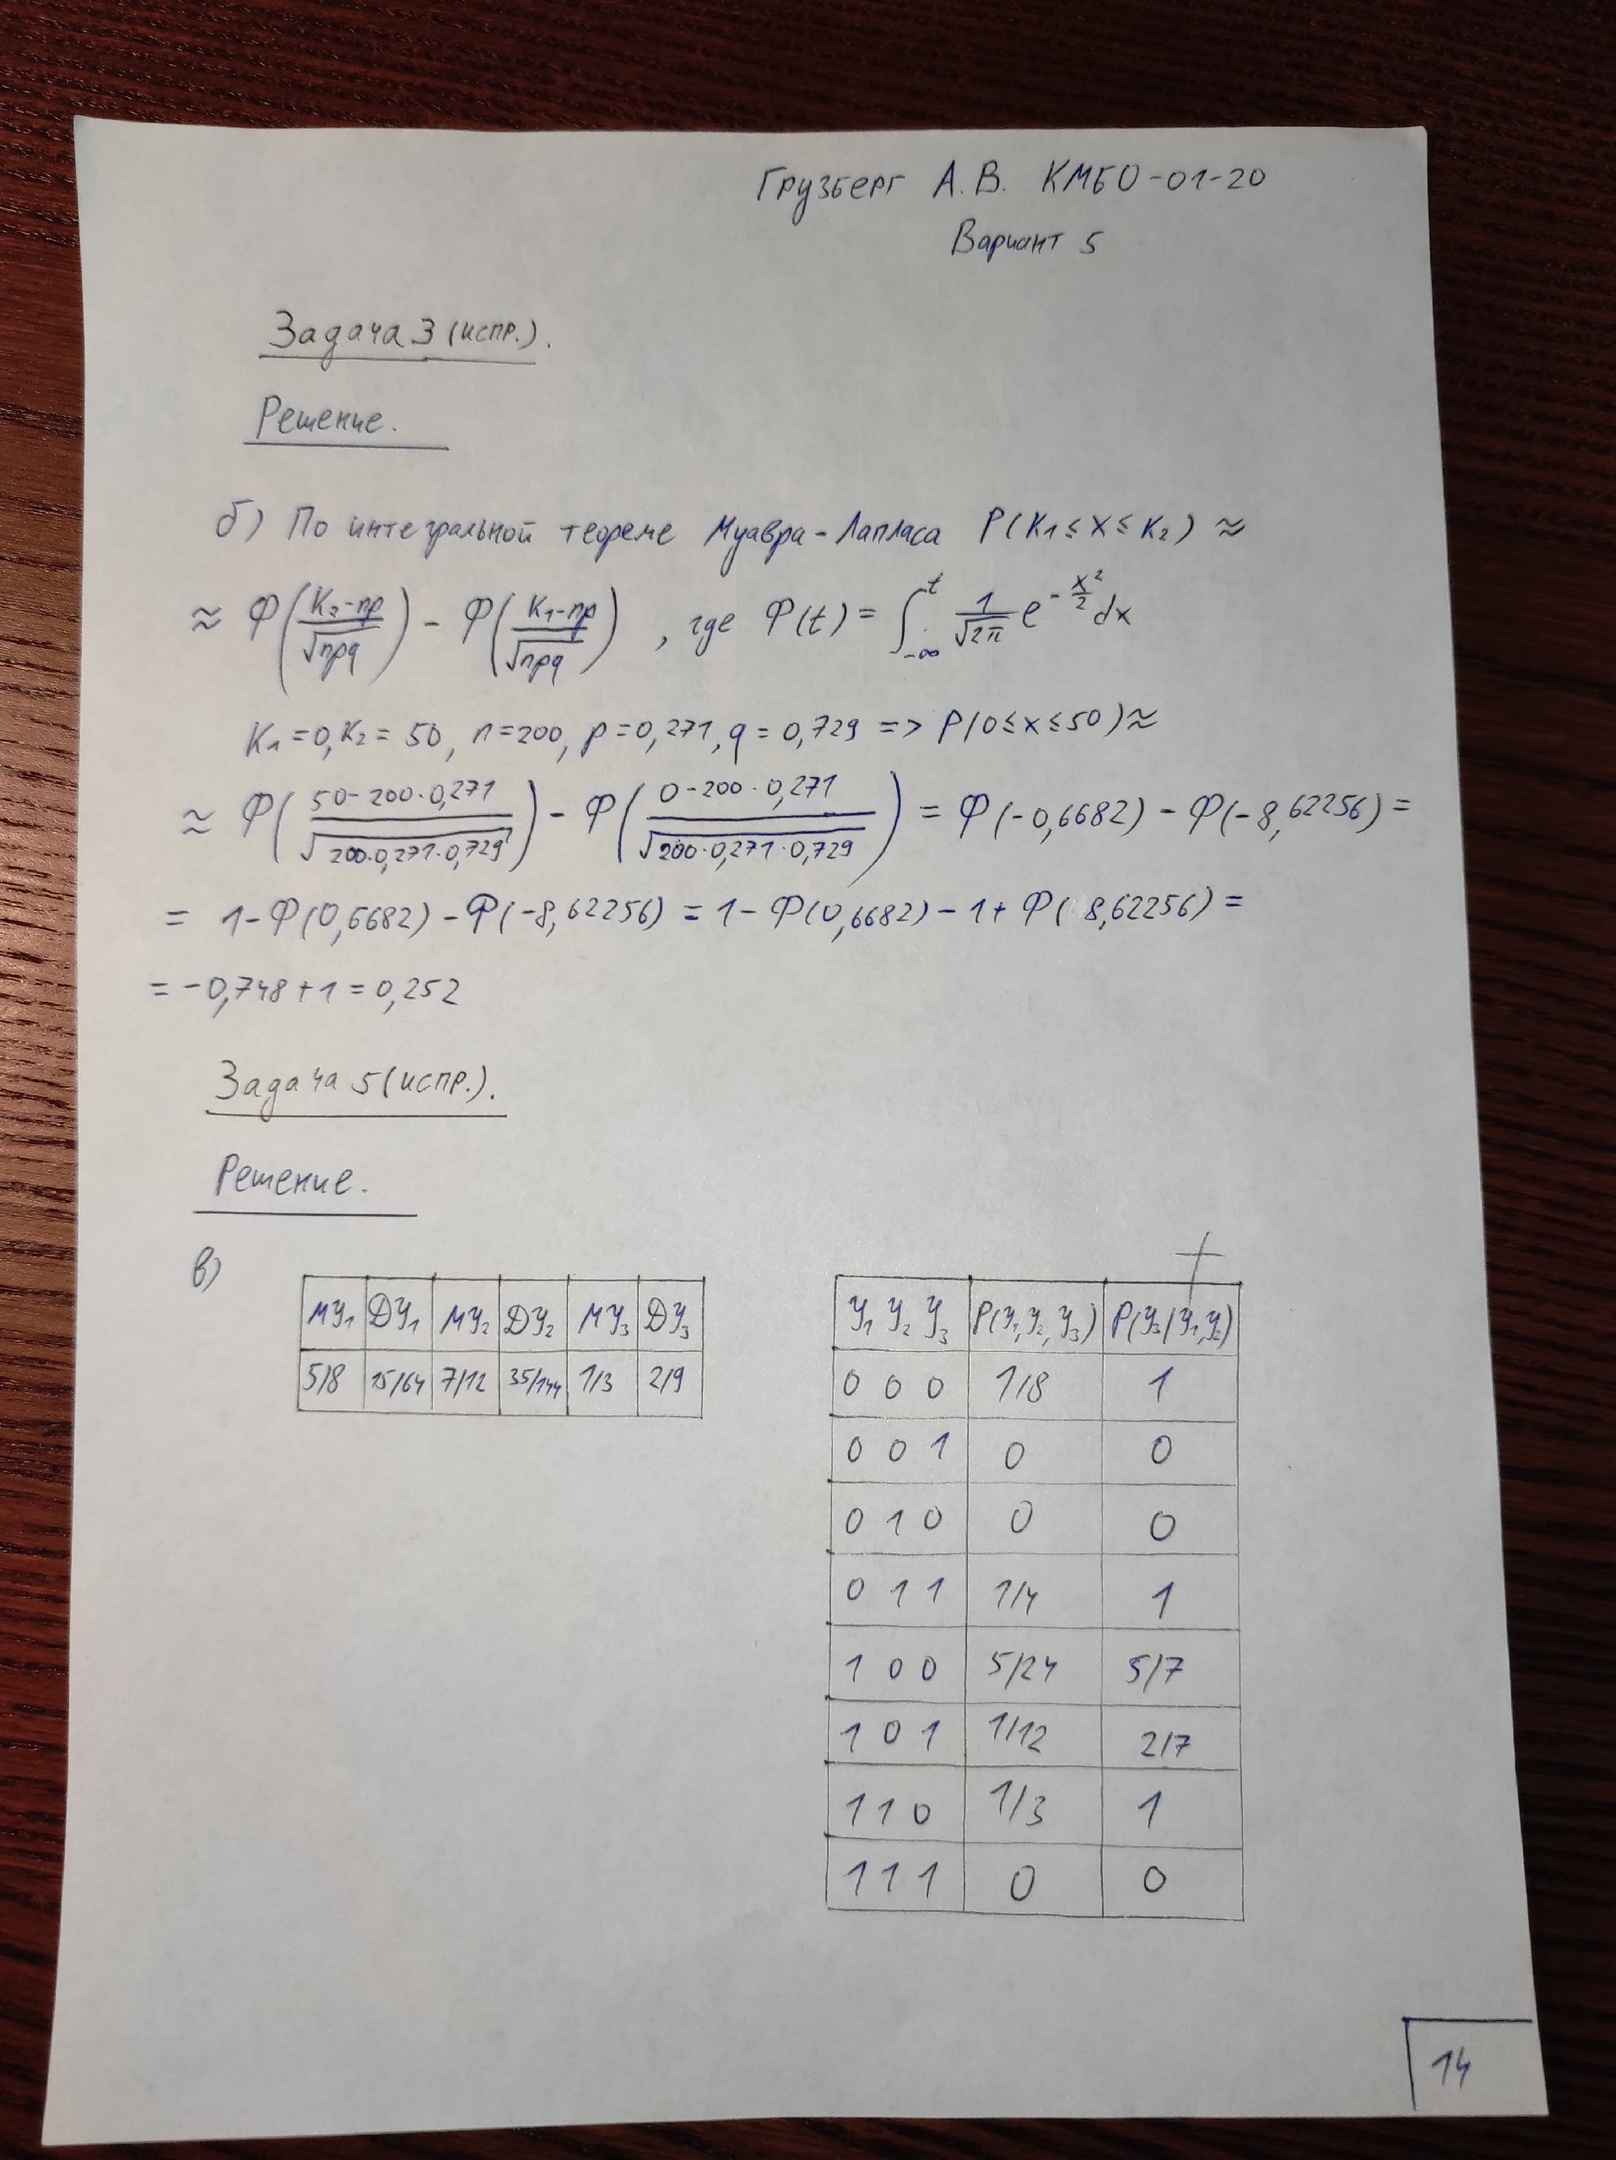 Грузберг А.В. КМБО-01-20
Вариант 5
Задача 3 (испр.).
Решение.
б) По интегральной теореме Муавра-Лапласа P(K₁ ≤ X ≤ K₂) ≈
≈ Φ((K₂-np)/√npq) - Φ((K₁-np)/√npq), где Φ(t) = ∫_{-∞}^{t} 1/√2π e^{-x²/2} dx
K₁ = 0, K₂ = 50, n = 200, p = 0,271, q = 0,729 => P(0 ≤ x ≤ 50) ≈
≈ Φ((50-200·0,271)/√200·0,271·0,729) - Φ((0-200·0,271)/√200·0,271·0,729) = Φ(-0,6682) - Φ(-8,62256) =
= 1-Φ(0,6682) - Φ(-8,62256) = 1-Φ(0,6682) - 1+Φ(8,62256) =
= -0,748+1 = 0,252
Задача 5 (испр.).
Решение.
в)
МУ₁ ДУ₁ МУ₂ ДУ₂ МУ₃ ДУ₃
5/8 15/64 7/12 35/144 1/3 2/9
У₁ У₂ У₃ P(У₁,У₂,У₃) P(У₃/У₁,У₂)
0 0 0 1/8 1
0 0 1 0 0
0 1 0 0 0
0 1 1 1/4 1
1 0 0 5/24 5/7
1 0 1 1/12 2/7
1 1 0 1/3 1
1 1 1 0 0
14